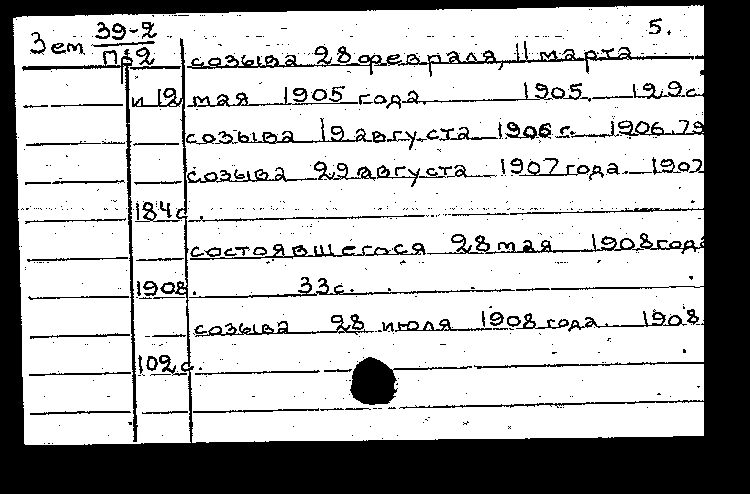 5.
Зем 39-2
П82 созыва 28 февраля, 11 марта
и 12 мая 1905 года. 1905. 129с
созыва 19 августа 1906 г. 1906. 79
созыва 29 августа 1907 года. 1907
184с.
состоявшегося 28 мая 1908 года
1908. 33с.
созыва 28 июля 1908 года. 1908
102с.